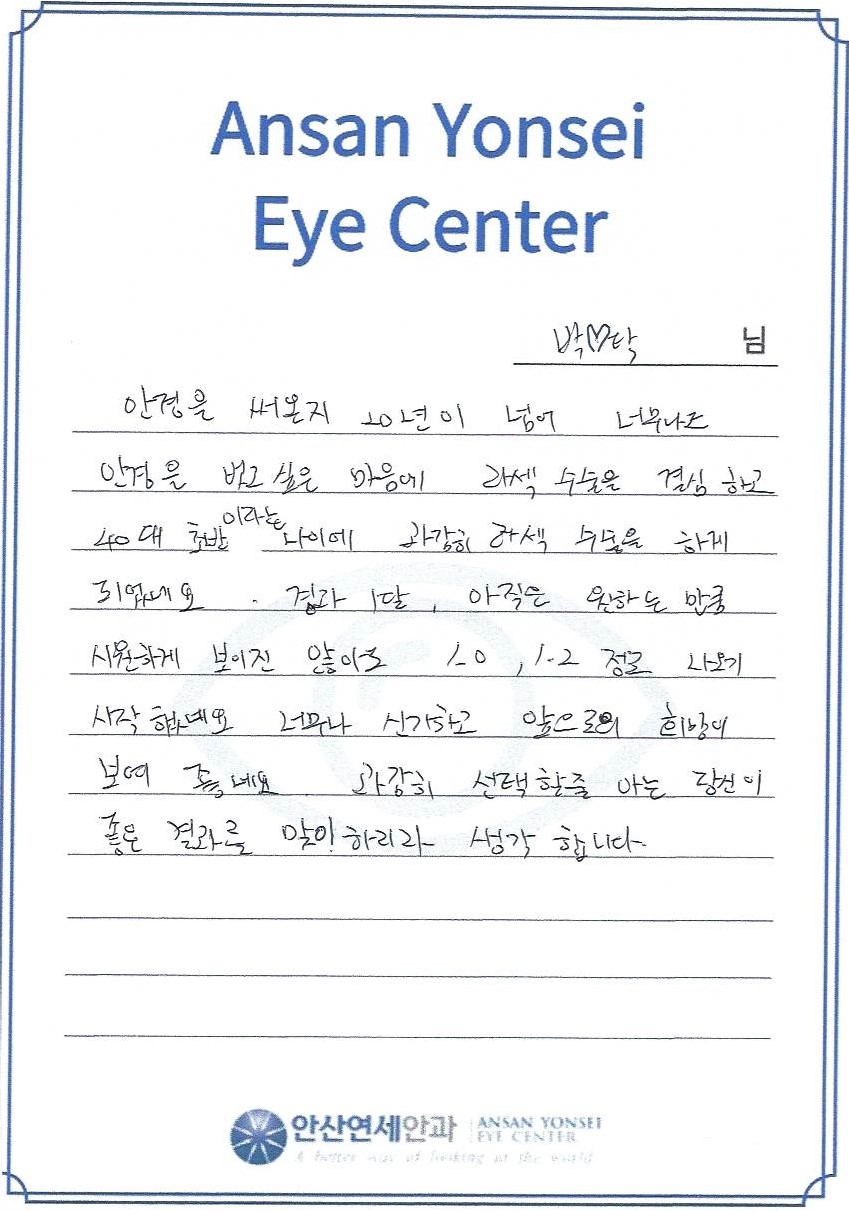 Ansan Yonsei
Eye Center
박♡탁 님
안경을 써온지 20년이 넘어 너무나도
안경을 벗고 싶은 마음에 라섹 수술을 결심 하고
40대 초반이라는 나이에 과감히 라섹 수술을 하게
되었네요. 경과 1달, 아직은 원하는 만큼
시원하게 보이진 않아도 1.0, 1.2 정도 나오기
시작 했네요 너무나 신기하고 앞으로의 희망이
보여 좋네요. 과감히 선택 할줄 아는 당신이
좋은 결과를 맞이 하리라 생각 합니다.
안산연세안과 ANSAN YONSEI
EYE CENTER
A better way of looking at the world